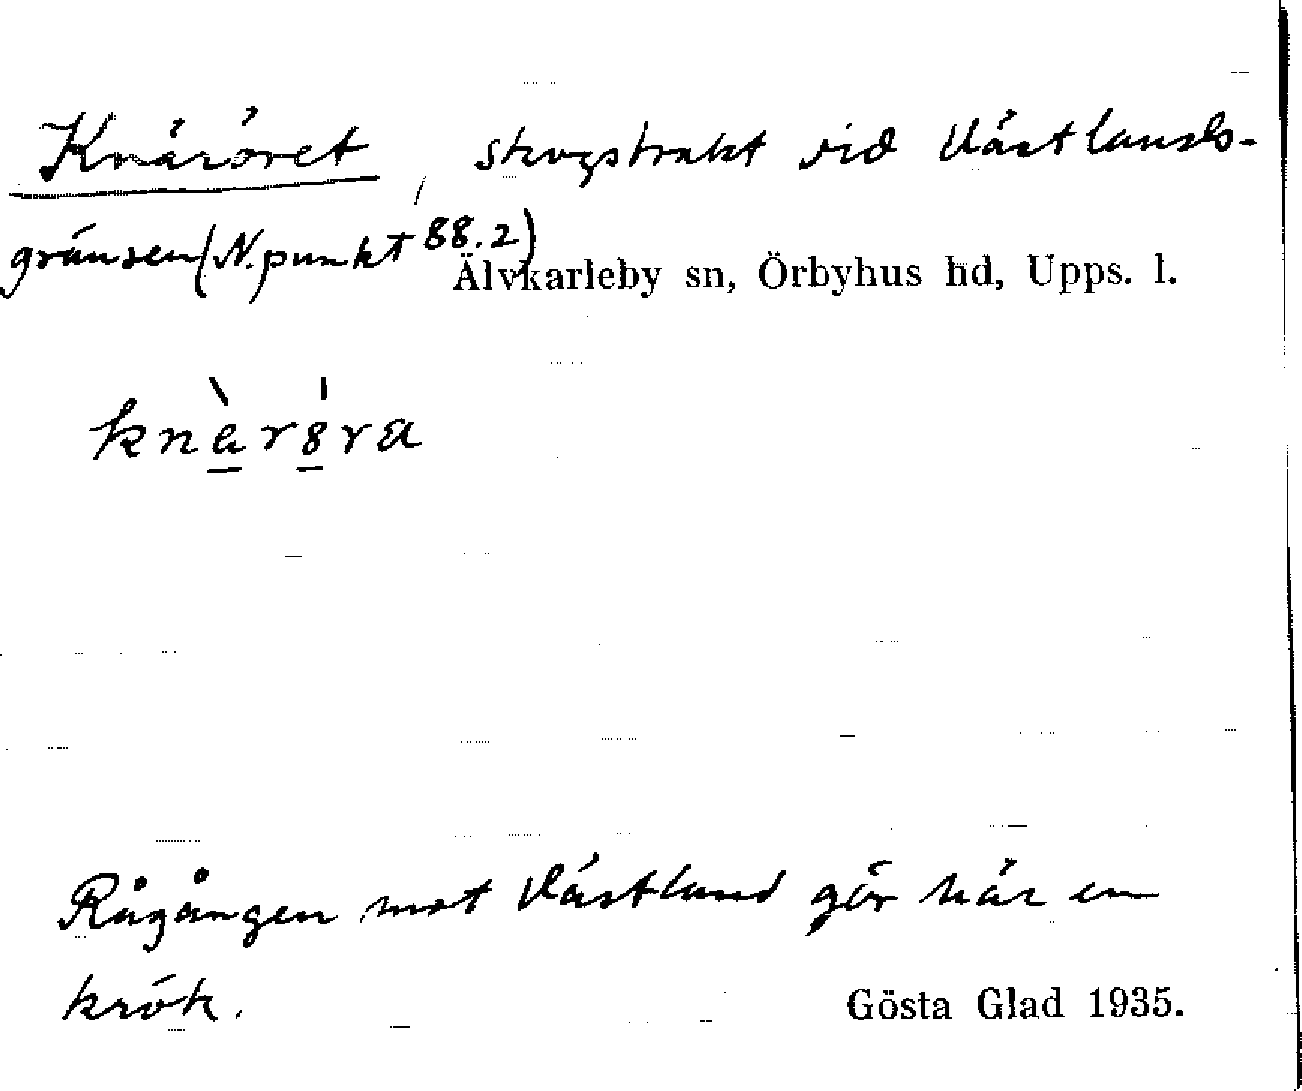 Knäröret, skogstrakt vid Västlands-
gränsen (N. punkt 88.2)
Älvkarleby sn, Örbyhus hd, Upps. l.
knàrö́ra
Rågången mot Västland gör här en
krök.
Gösta Glad 1935.